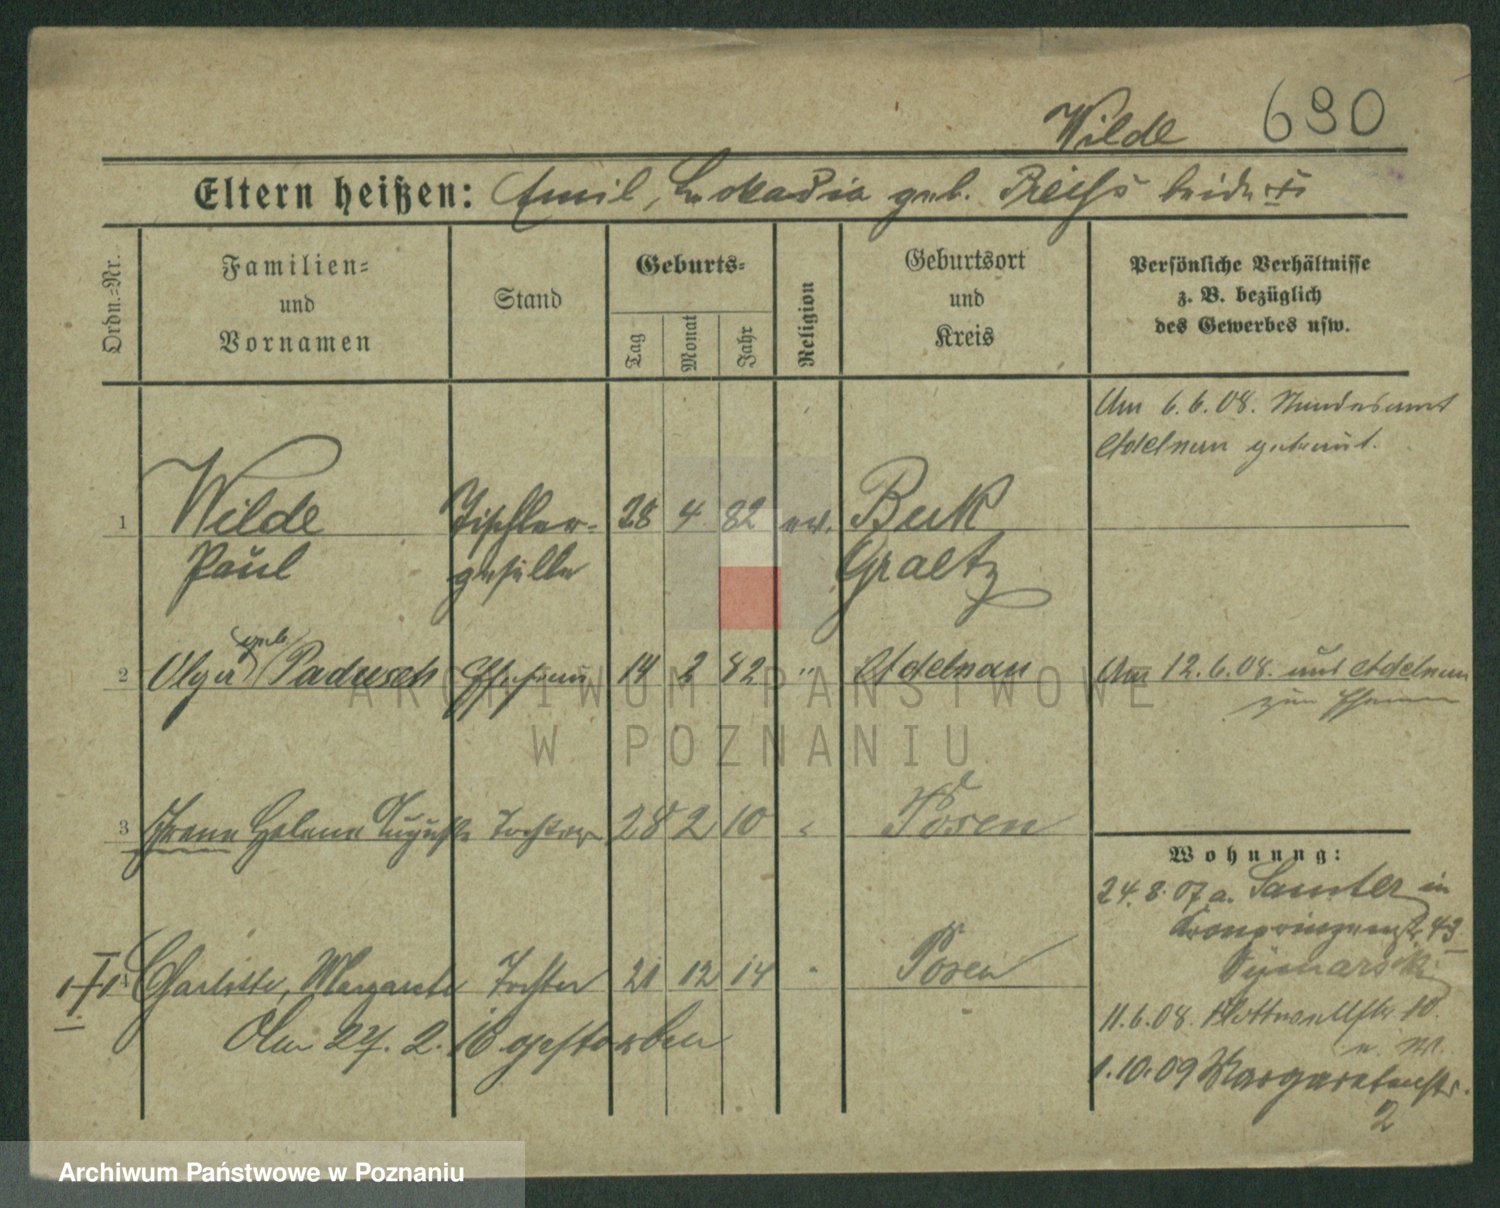 Wilde 690
Eltern heißen: Emil, Leokadia geb. Reihs beide
Ordn.=Nr.
Familien=
und
Vornamen
Stand
Geburts=
Tag
Monat
Jahr
Religion
Geburtsort
und
Kreis
Persönliche Verhältnisse
z. B. bezüglich
des Gewerbes usw.
Am 6.6.08. Standesamt
Adelnau getraut.
1 Wilde Tischler= 28 4 82 ev. Buk
Paul geselle Graetz
geb.
2 Olga Padusch Ehefrau 14 2 82 " Adelnau Am 12.6.08. aus Adelnau
zum Ehemann
3 Irene Helene Auguste Tochter 28 2 10 Posen
Wohnung:
24.8.07 a. Samter in
Kronprinzenstr. 43
4 Charlotte, Margarete Tochter 21 12 14 " Posen
11.6.08. Flottwellstr 10.
Am 27.2.16 gestorben
1.10.09 Margaretenstr.
2
ARCHIWUM PAŃSTWOWE
W POZNANIU
Archiwum Państwowe w Poznaniu